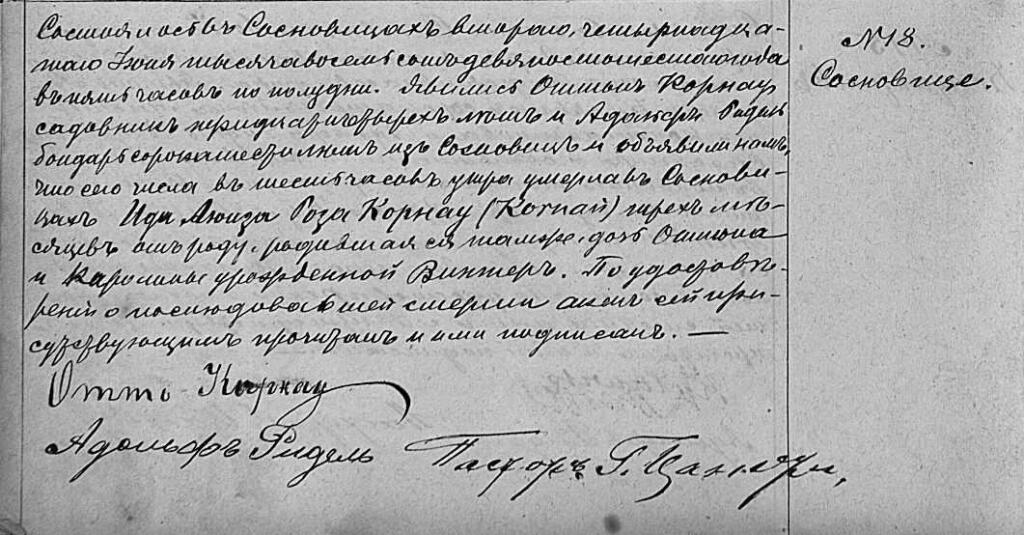 Состоялось въ Сосновицахъ второго, четырнадца-
таго Іюня тысяча восемьсотъ девяносто шестого года
въ пять часовъ по полудни. Явились Оттонъ Корнау
садовникъ тридцати четырехъ лѣтъ и Адольфъ Ридель
бондарь сорока шести лѣтъ изъ Сосновицъ и объявили намъ,
что сего числа въ шесть часовъ утра умерла въ Сосновн-
цахъ Ида Луиза Роза Корнау (Kornau) трехъ мѣ-
сяцевъ отъ роду, родившаяся тамже, дочь Оттона
и Каролины урожденной Винтеръ. По удостовѣ-
реніи о послѣдовавшей смерти актъ сей при-
сутствующимъ прочитанъ и ими подписанъ. —
Отто Корнау
Адольфъ Ридель Пасторъ Г.
№ 18.
Сосновице.